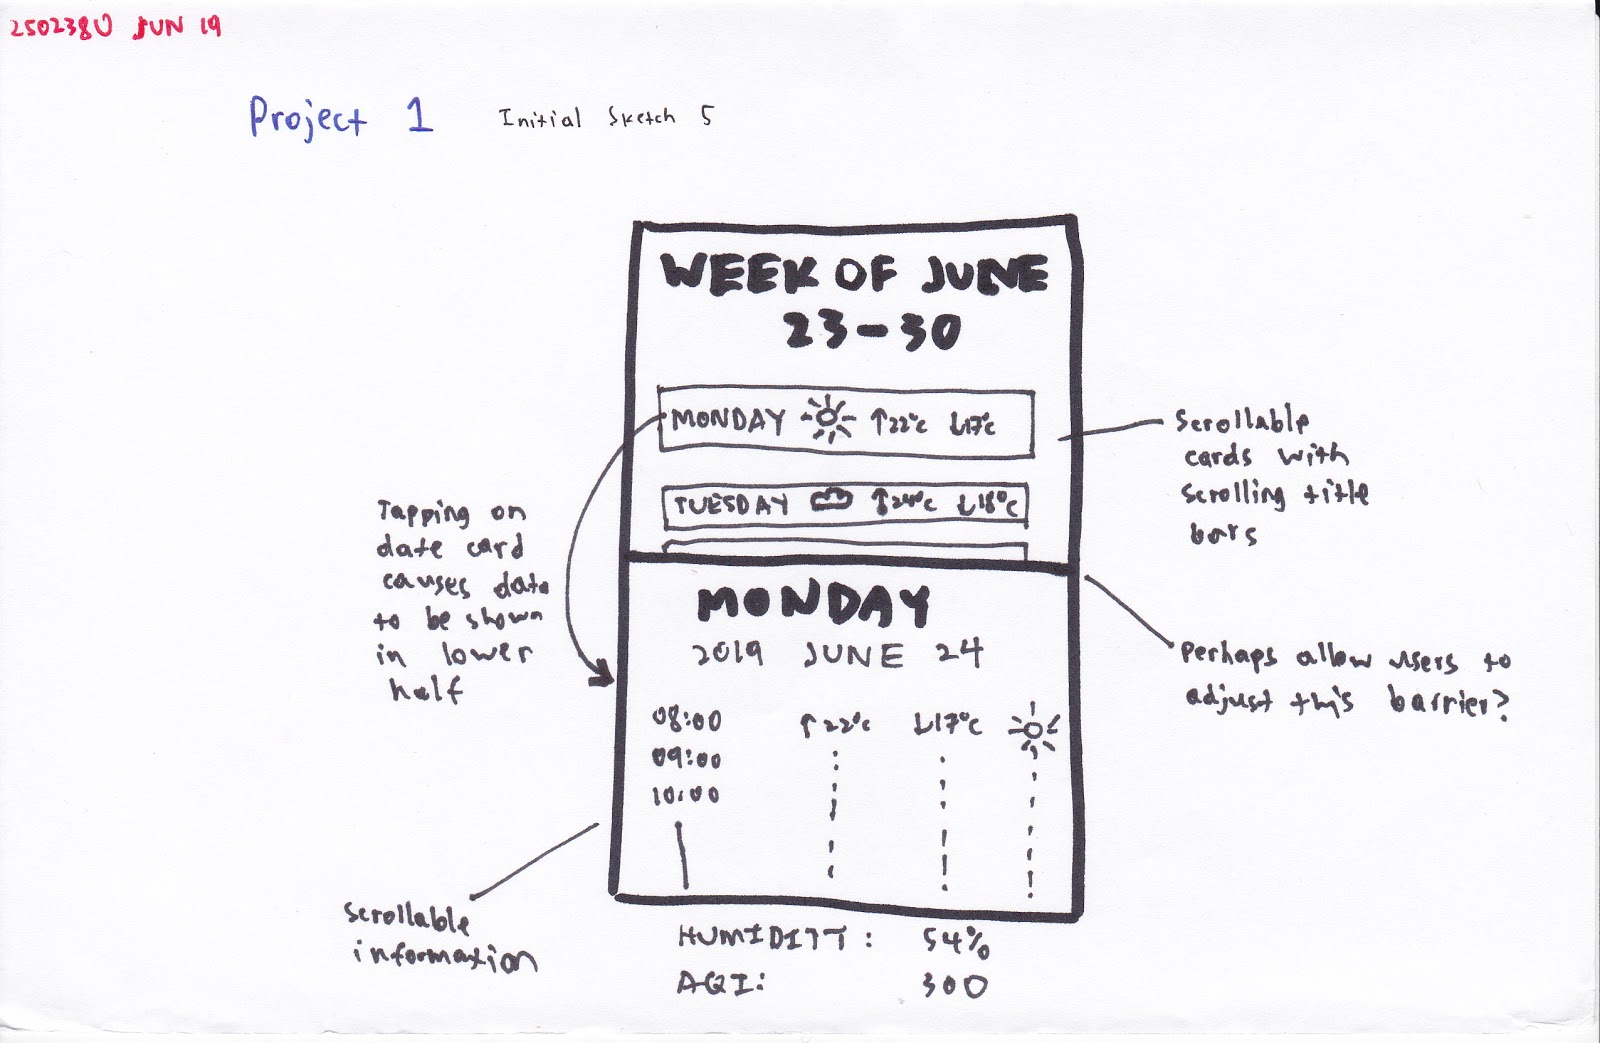 250238U JUN 19
Project 1 Initial Sketch 5
WEEK OF JUNE
23-30
MONDAY ↑22°C ↓17°C
TUESDAY ↑24°C ↓18°C
Scrollable
cards with
scrolling title
bars
Tapping on
date card
causes data
to be shown
in lower
half
MONDAY
2019 JUNE 24
08:00 ↑22°C ↓17°C
09:00
10:00
Perhaps allow users to
adjust this barrier?
Scrollable
information
HUMIDITY: 54%
AQI: 300